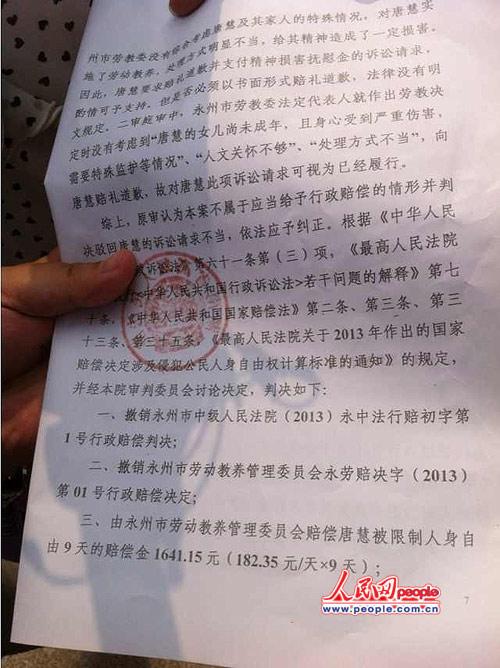 州市劳教委没有综合考虑唐慧及其家人的特殊情况，对唐慧实
施了劳动教养，处理方式明显不当，给其精神造成了一定损害。
因此，唐慧要求赔礼道歉并支付精神损害抚慰金的诉讼请求，
酌情可予支持。但是否必须以书面形式赔礼道歉，法律没有明
文规定。二审庭审中，永州市劳教委法定代表人就作出劳教决
定时没有考虑到“唐慧的女儿尚未成年，且身心受到严重伤害，
需要特殊监护等情况”、“人文关怀不够”、“处理方式不当”，向
唐慧赔礼道歉，故对唐慧此项诉讼请求可视为已经履行。
综上，原审认为本案不属于应当给予行政赔偿的情形并判
决驳回唐慧的诉讼请求不当，依法应予纠正。根据《中华人民
政诉讼法》第六十一条第（三）项，《最高人民法院
中华人民共和国行政诉讼法>若干问题的解释》第七
十条，《中华人民共和国国家赔偿法》第二条、第三条、第三
十三条、第三十五条，《最高人民法院关于2013年作出的国家
赔偿决定涉及侵犯公民人身自由权计算标准的通知》的规定，
并经本院审判委员会讨论决定，判决如下：
一、撤销永州市中级人民法院（2013）永中法行赔初字第
1号行政赔偿判决；
二、撤销永州市劳动教养管理委员会永劳赔决字（2013）
第01号行政赔偿决定；
三、由永州市劳动教养管理委员会赔偿唐慧被限制人身自
由9天的赔偿金1641.15元（182.35元/天×9天）；
7
人民网people
www.people.com.cn